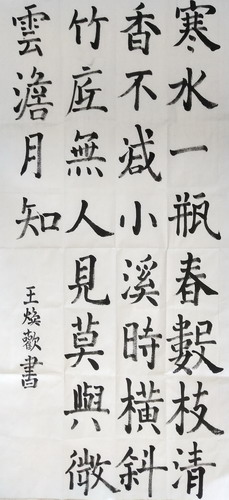 寒水一瓶春數枝清
香不減小溪時橫斜
竹㡳無人見莫與微
雲澹月知
王焕歡書